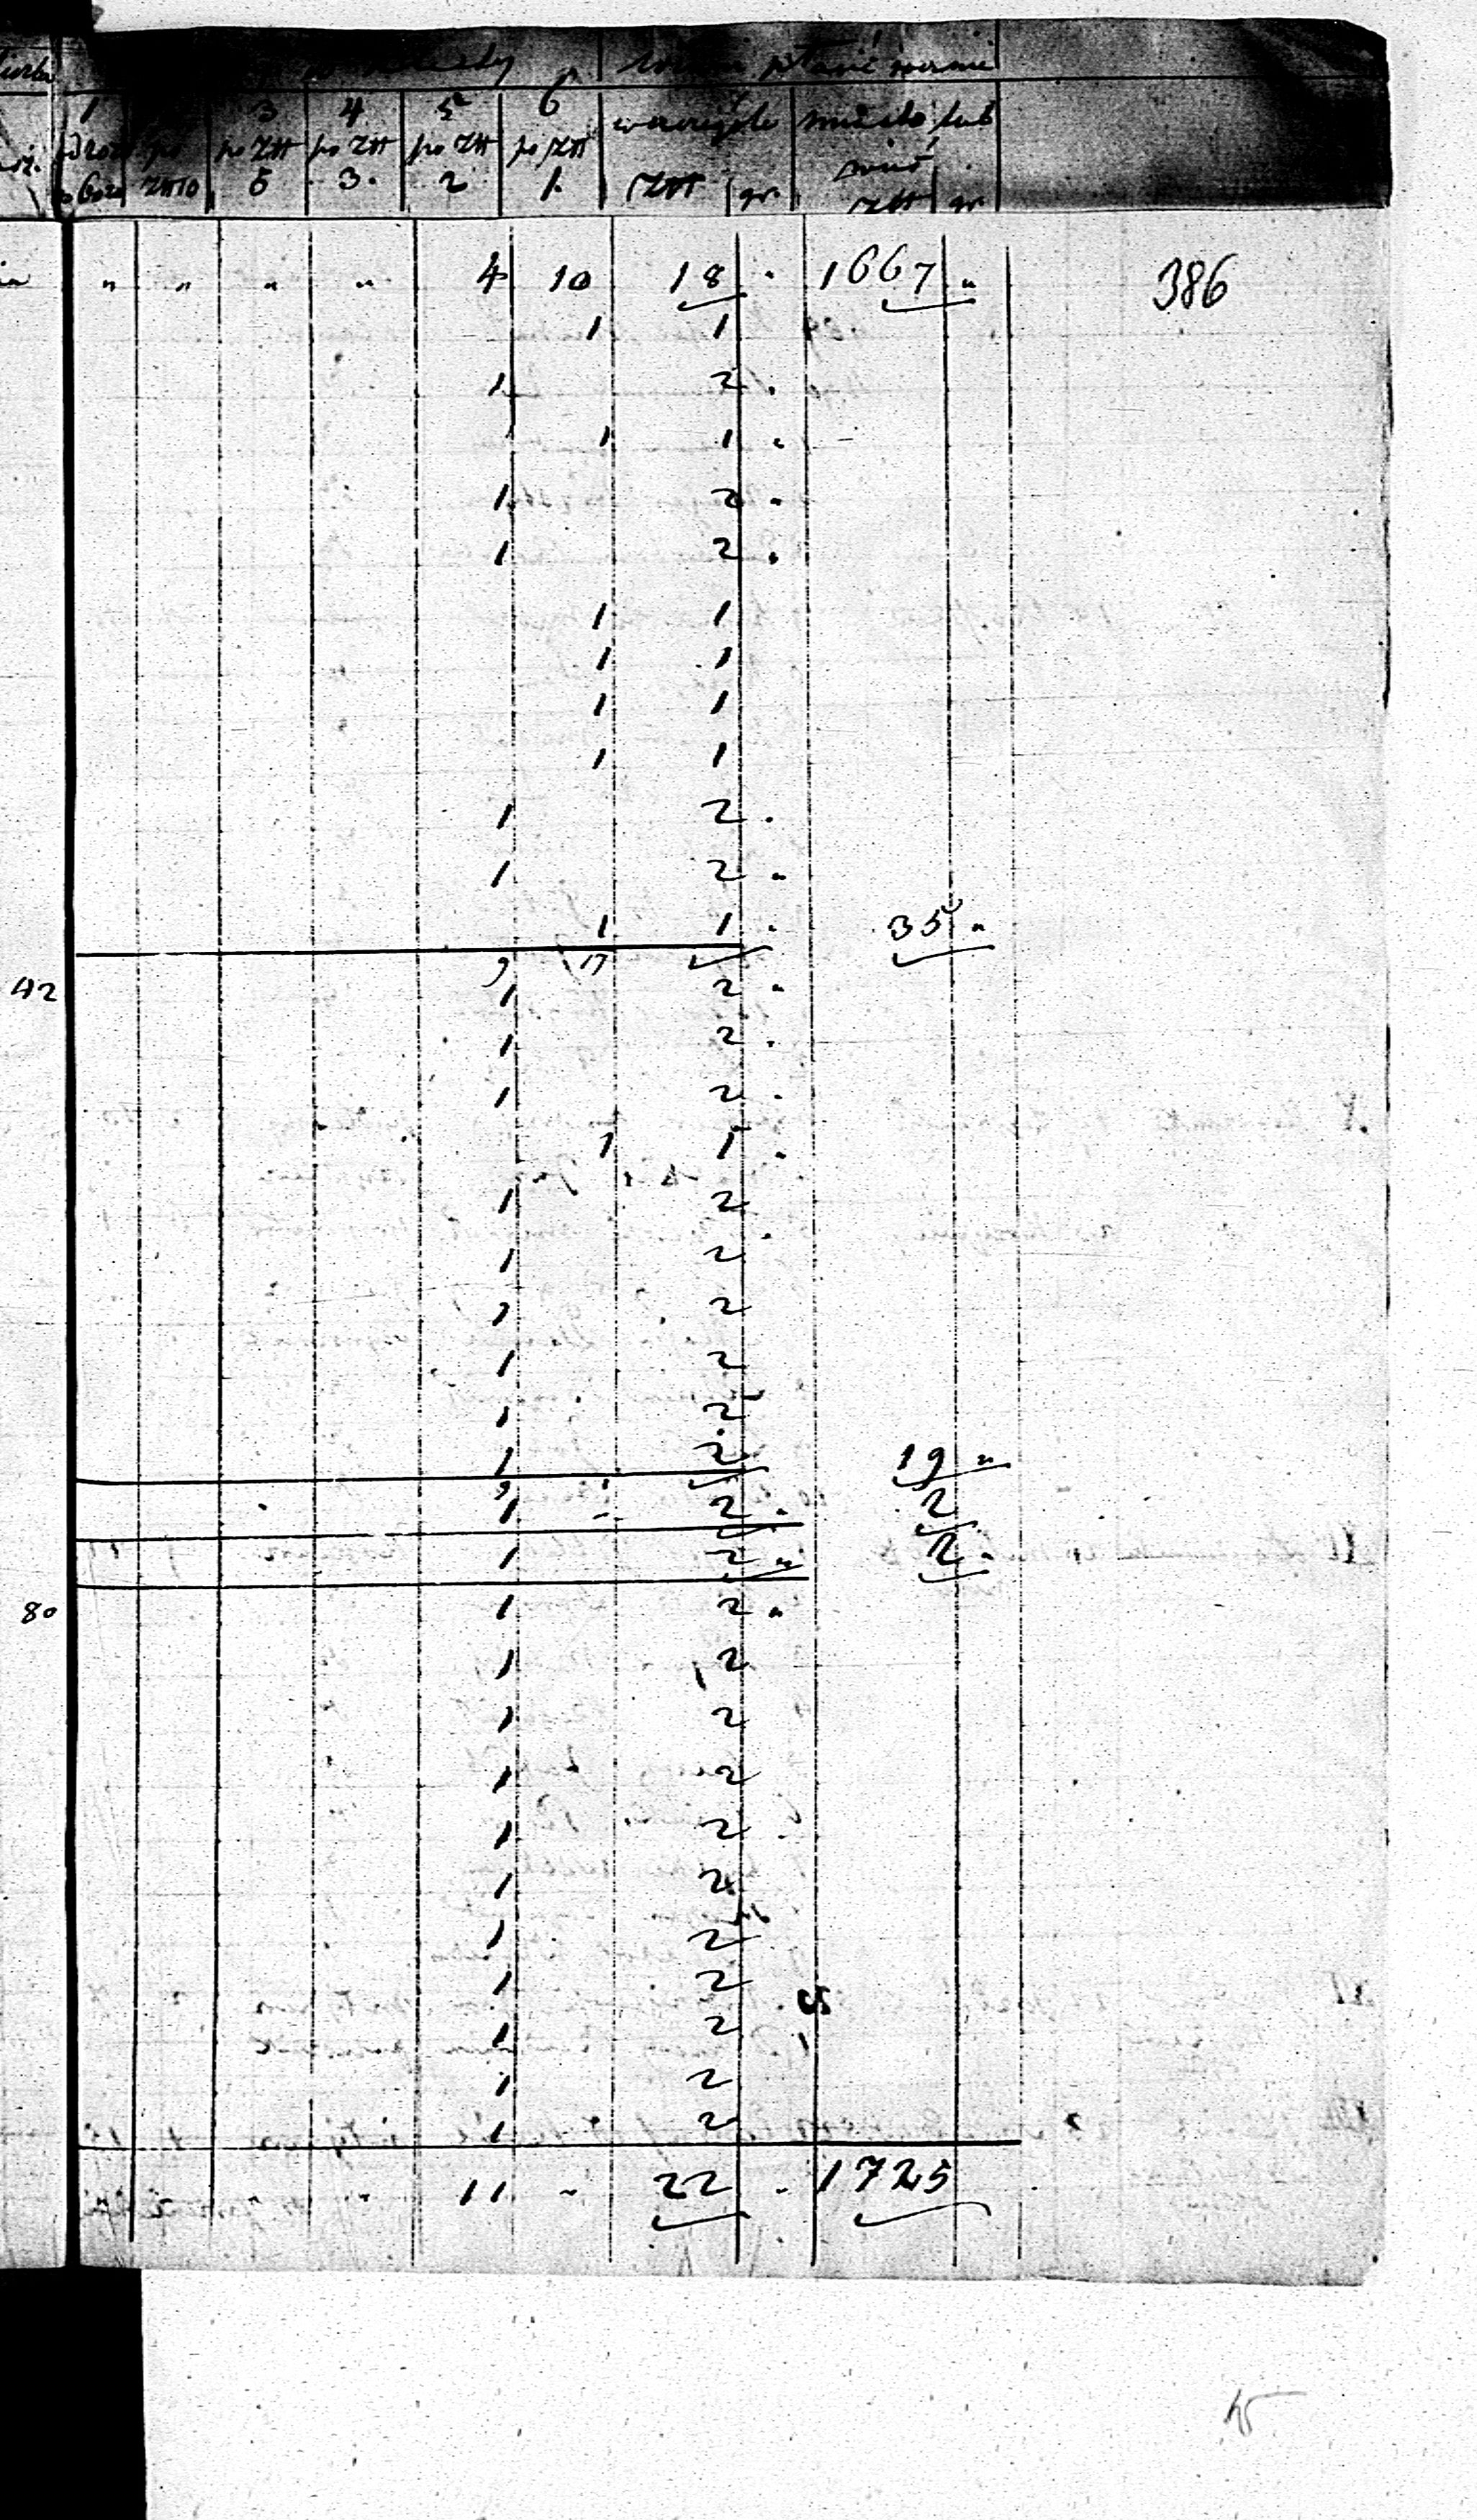 1 3 4 5 6 w szczególe miasto lub
po Złt po Złt po Złt po Złt wieś
Złt 10 5 3. 2 1. Złt gr. Złt gr
" " " " 4 10 18 . 1667 " 386
1 1
1 2 .
1 1 .
1 2 .
1 2 .
1 1
1 1
1 1
1 1
1 2 .
1 2 "
1 1 . 35 "
9 17
42 1 2 "
1 2 .
1 2 .
1 1 .
1 2
1 2
1 2
1 2
1 2
1 2 19 "
9 1
1 2 . 2
1 2 " 2 "
80 1 2 "
1 2
1 2
1 2
1 2
1 2
1 2
1 2
1 2
1 2
1 2
" 11 " 22 . 1725